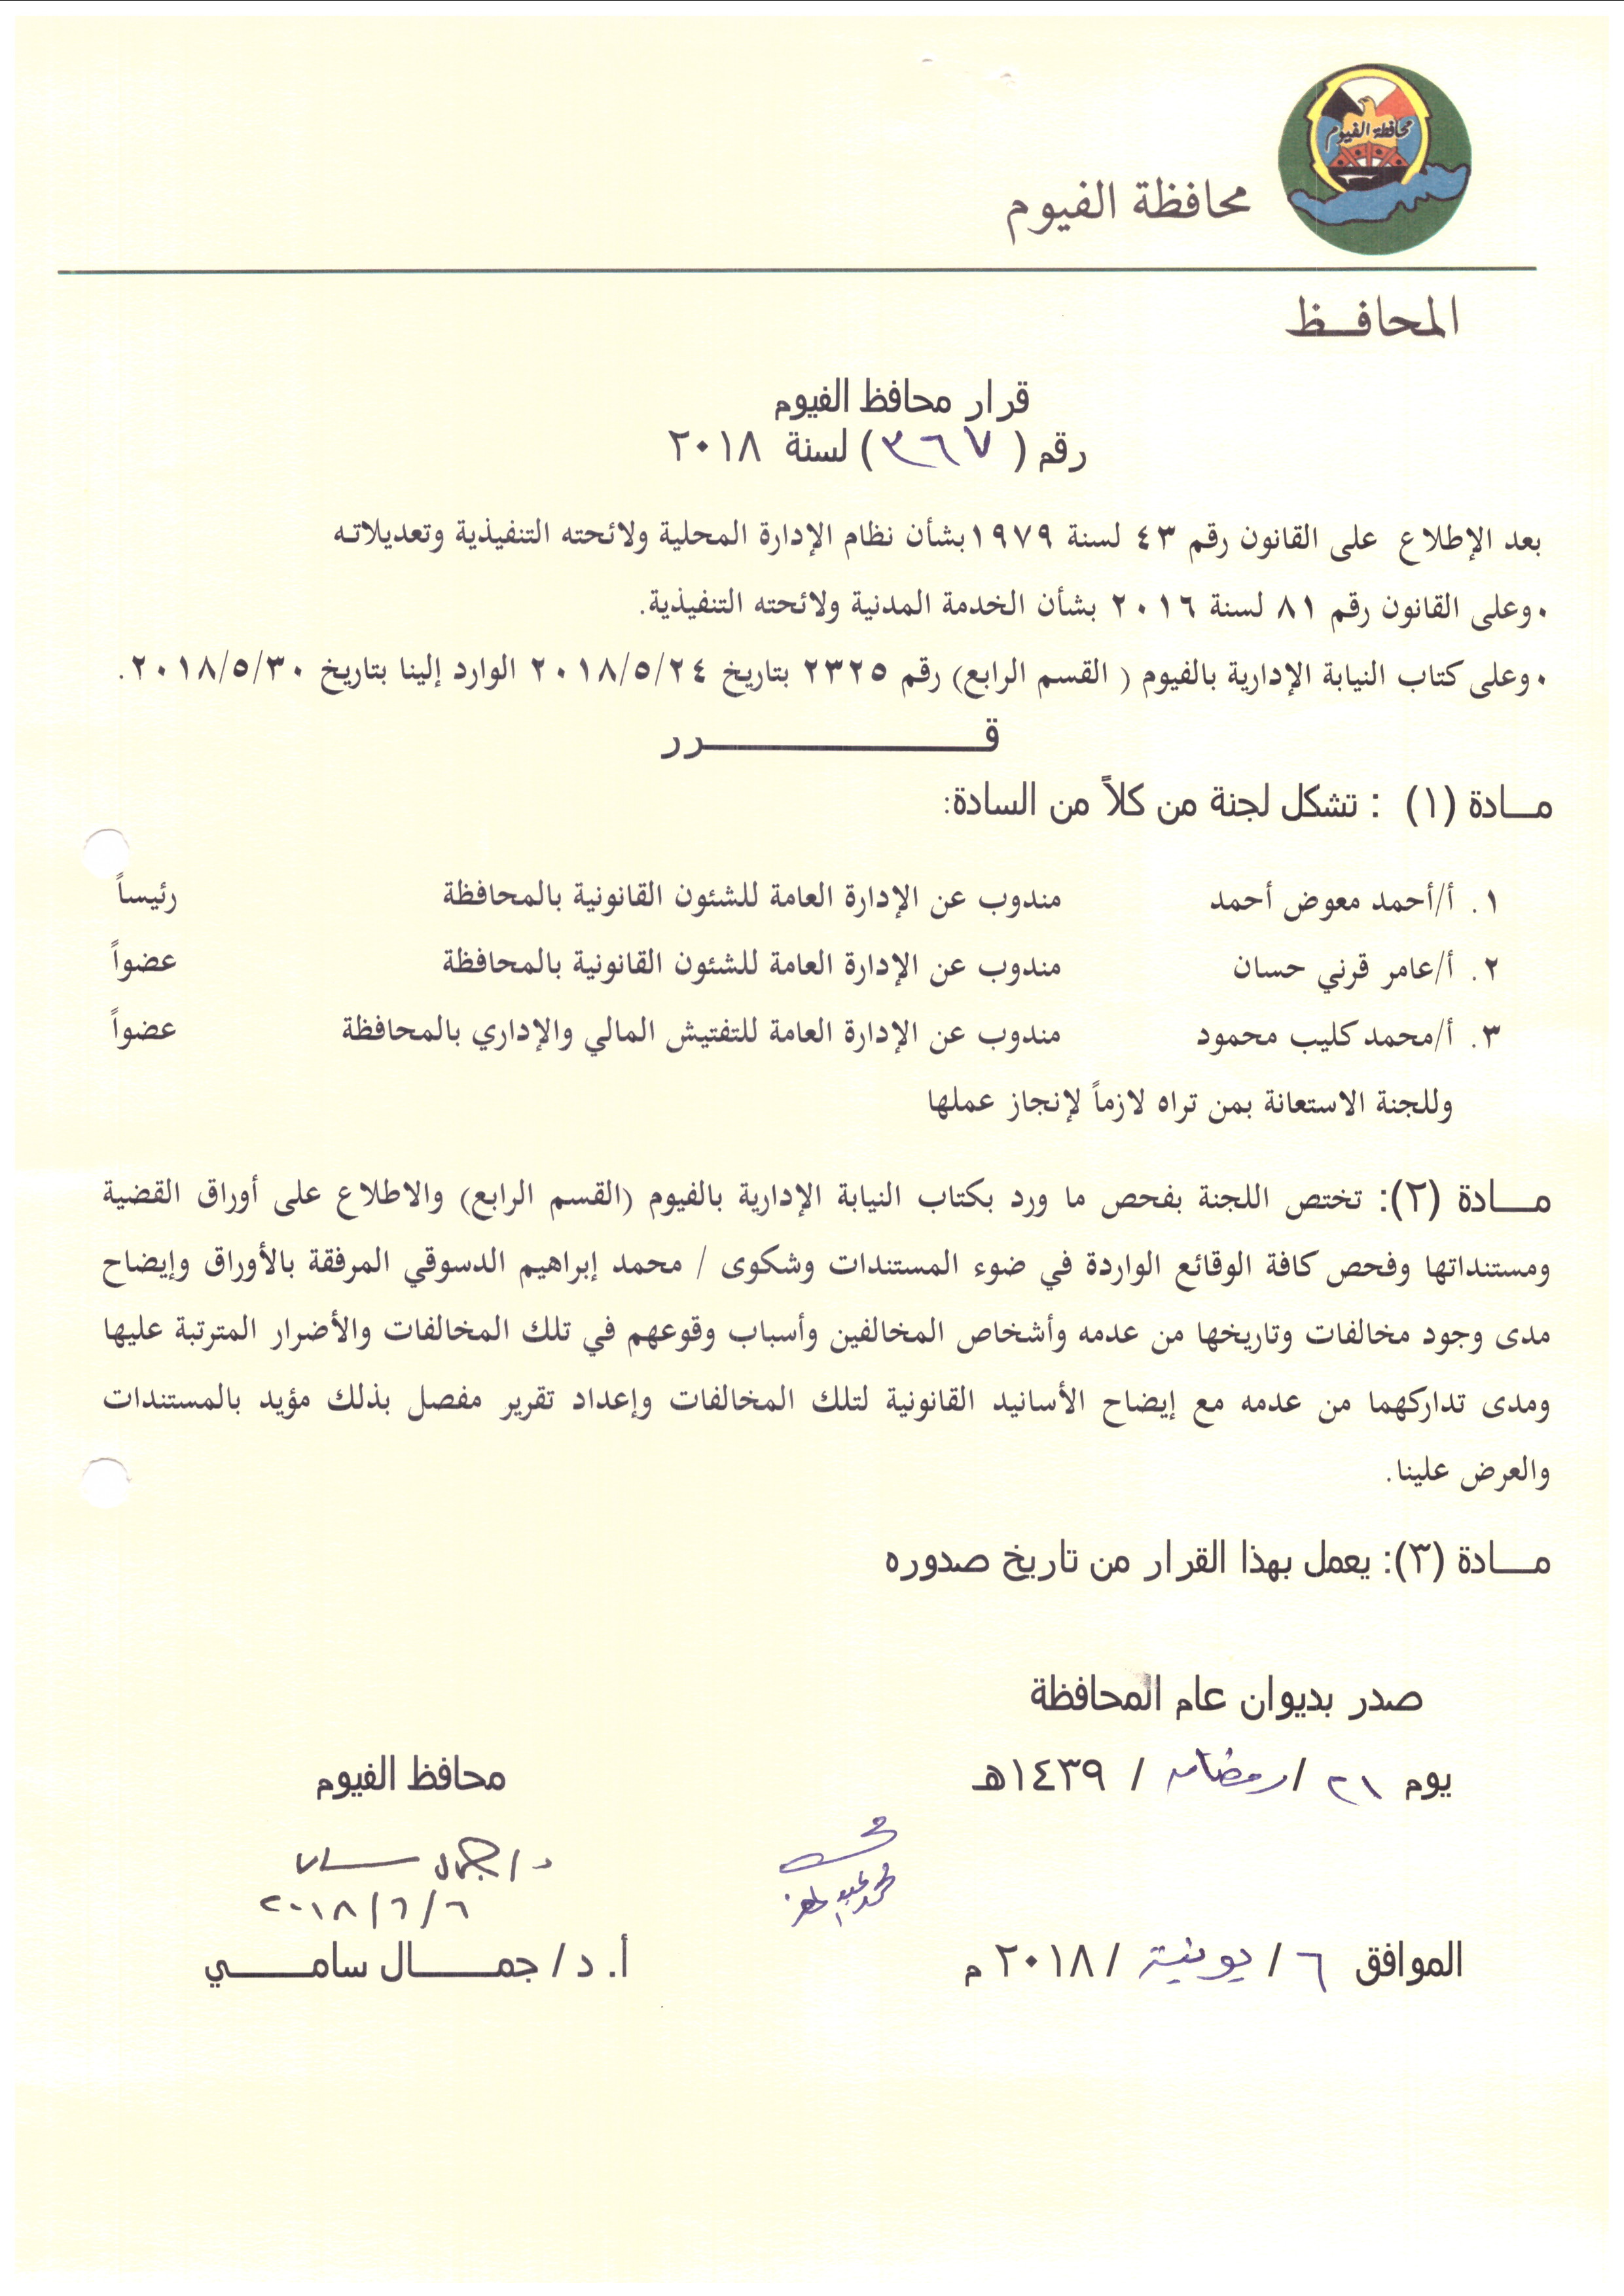 محافظة الفيوم
محافظة الفيوم
المحافـظ
قرار محافظ الفيوم
رقم ( ٣٦٧ ) لسنة ٢٠١٨
بعد الإطلاع على القانون رقم ٤٣ لسنة ١٩٧٩بشأن نظام الإدارة المحلية ولائحته التنفيذية وتعديلاته
• وعلى القانون رقم ٨١ لسنة ٢٠١٦ بشأن الخدمة المدنية ولائحته التنفيذية.
• وعلى كتاب النيابة الإدارية بالفيوم ( القسم الرابع) رقم ٢٣٢٥ بتاريخ ٢٠١٨/٥/٢٤ الوارد إلينا بتاريخ ٢٠١٨/٥/٣٠.
قـــــــــــرر
مــادة (١) : تشكل لجنة من كلاً من السادة:
١. أ/أحمد معوض أحمد مندوب عن الإدارة العامة للشئون القانونية بالمحافظة رئيساً
٢. أ/عامر قرني حسان مندوب عن الإدارة العامة للشئون القانونية بالمحافظة عضواً
٣. أ/محمد كليب محمود مندوب عن الإدارة العامة للتفتيش المالي والإداري بالمحافظة عضواً
وللجنة الاستعانة بمن تراه لازماً لإنجاز عملها
مــادة (٢): تختص اللجنة بفحص ما ورد بكتاب النيابة الإدارية بالفيوم (القسم الرابع) والاطلاع على أوراق القضية
ومستنداتها وفحص كافة الوقائع الواردة في ضوء المستندات وشكوى / محمد إبراهيم الدسوقي المرفقة بالأوراق وإيضاح
مدى وجود مخالفات وتاريخها من عدمه وأشخاص المخالفين وأسباب وقوعهم في تلك المخالفات والأضرار المترتبة عليها
ومدى تداركهما من عدمه مع إيضاح الأسانيد القانونية لتلك المخالفات وإعداد تقرير مفصل بذلك مؤيد بالمستندات
والعرض علينا.
مــادة (٣): يعمل بهذا القرار من تاريخ صدوره
صدر بديوان عام المحافظة
يوم ٢١ / رمضان / ١٤٣٩هـ
الموافق ٦ / يونية / ٢٠١٨ م
محافظ الفيوم
د/ جمال سامي
٢٠١٨/٦/٦
أ. د/ جمـــال سامـــي